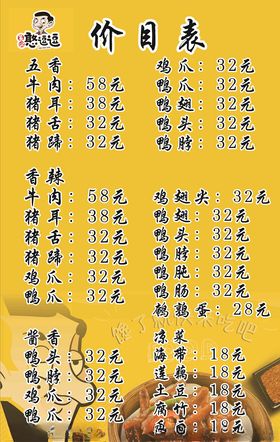 憨逗逗
价目表
五香
牛肉：58元
猪耳：38元
猪舌：32元
猪蹄：32元
鸡爪：32元
鸭爪：32元
鸭翅：32元
鸭头：32元
鸭脖：32元
香辣
牛肉：58元
猪耳：38元
猪舌：32元
猪蹄：32元
鸡爪：32元
鸭爪：32元
鸡翅尖：32元
鸭翅：32元
鸭头：32元
鸭脖：32元
鸭肫：32元
鸭肠：32元
鹌鹑蛋：28元
酱香
鸭头：32元
鸭脖：32元
鸡爪：32元
鸭爪：32元
凉菜
海带：18元
莲藕：18元
土豆：18元
腐竹：18元